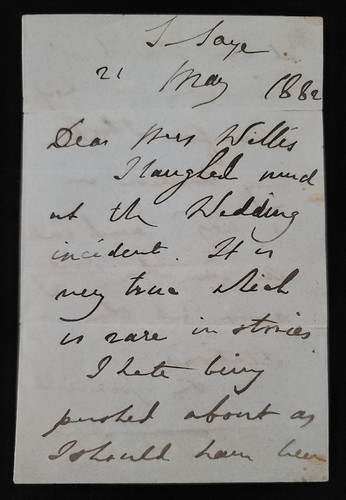 21 May 1882
Dear Mrs Willis
I laughed much
at the Wedding
incident. It is
very true which
is rare in stories
I hate being
pushed about as
I should have been